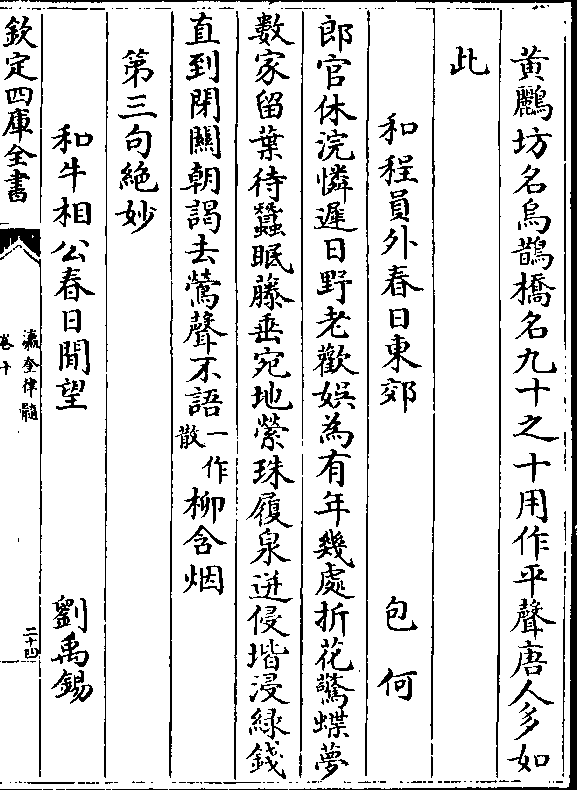 黄鸝坊名烏鵲橋名九十之十用作平聲唐人多如
此
和程員外春日東郊　包何
郎官休浣憐遲日野老歡娛為有年幾處折花驚蝶夢
數家留葉待蠶眠藤垂宛地縈珠履泉迸侵堦浸緑錢
直到閉關朝謁去鶯聲不語一作散柳含烟
第三句絶妙
和牛相公春日閒望　劉禹錫
欽定四庫全書
瀛奎律髓
卷十
二十四